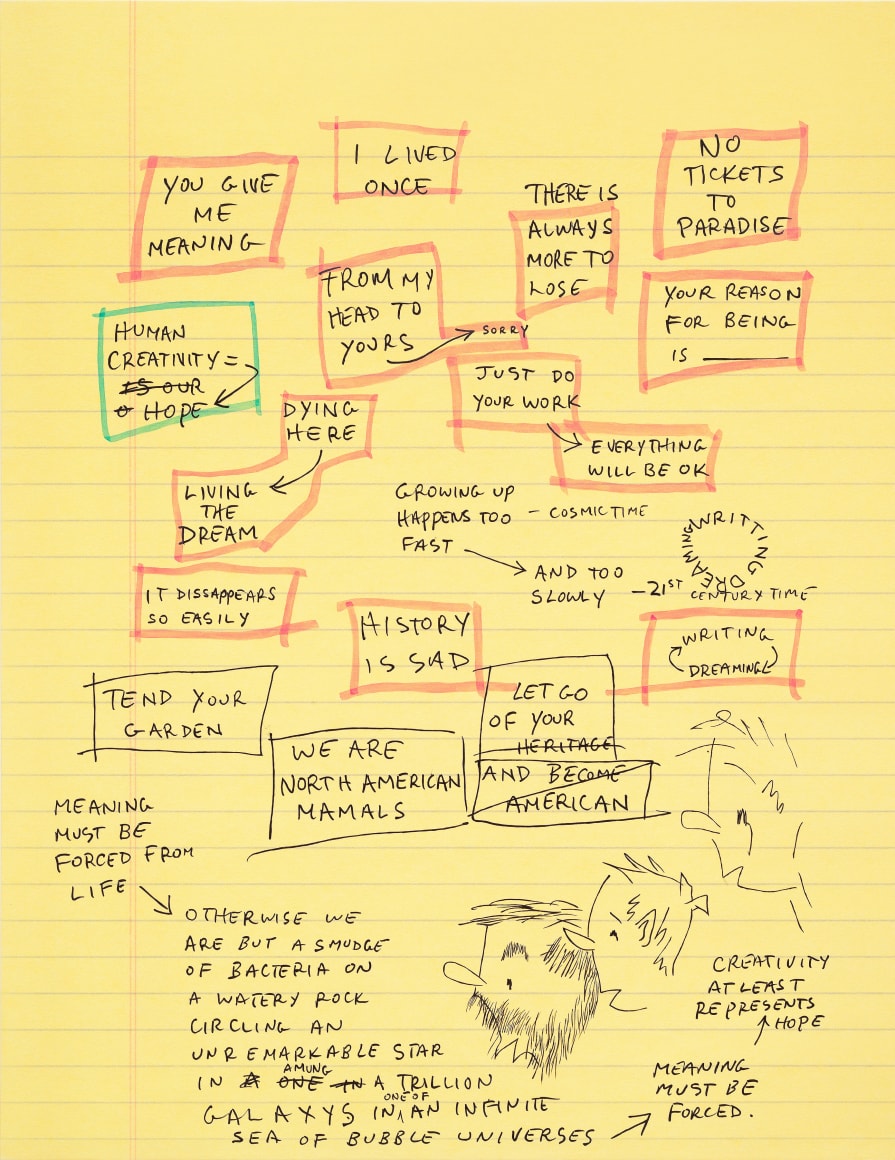 I LIVED
ONCE
YOU GIVE
ME
MEANING
NO
TICKETS
TO
PARADISE
THERE IS
ALWAYS
MORE TO
LOSE
FROM MY
HEAD TO
YOURS
SORRY
YOUR REASON
FOR BEING
IS ______
HUMAN
CREATIVITY =
IS OUR
O HOPE
JUST DO
YOUR WORK
EVERYTHING
WILL BE OK
DYING
HERE
LIVING
THE
DREAM
GROWING UP
HAPPENS TOO
FAST
- COSMIC TIME
AND TOO
SLOWLY
- 21ST CENTURY TIME
WRITTING DREAMING
IT DISSAPPEARS
SO EASILY
HISTORY
IS SAD
WRITING
DREAMING
TEND YOUR
GARDEN
WE ARE
NORTH AMERICAN
MAMALS
LET GO
OF YOUR
HERITAGE
AND BECOME
AMERICAN
MEANING
MUST BE
FORCED FROM
LIFE
OTHERWISE WE
ARE BUT A SMUDGE
OF BACTERIA ON
A WATERY ROCK
CIRCLING AN
UNREMARKABLE STAR
IN A ONE AMUNG IN A TRILLION
GALAXYS IN ONE OF AN INFINITE
SEA OF BUBBLE UNIVERSES
MEANING
MUST BE
FORCED.
CREATIVITY
AT LEAST
REPRESENTS
HOPE